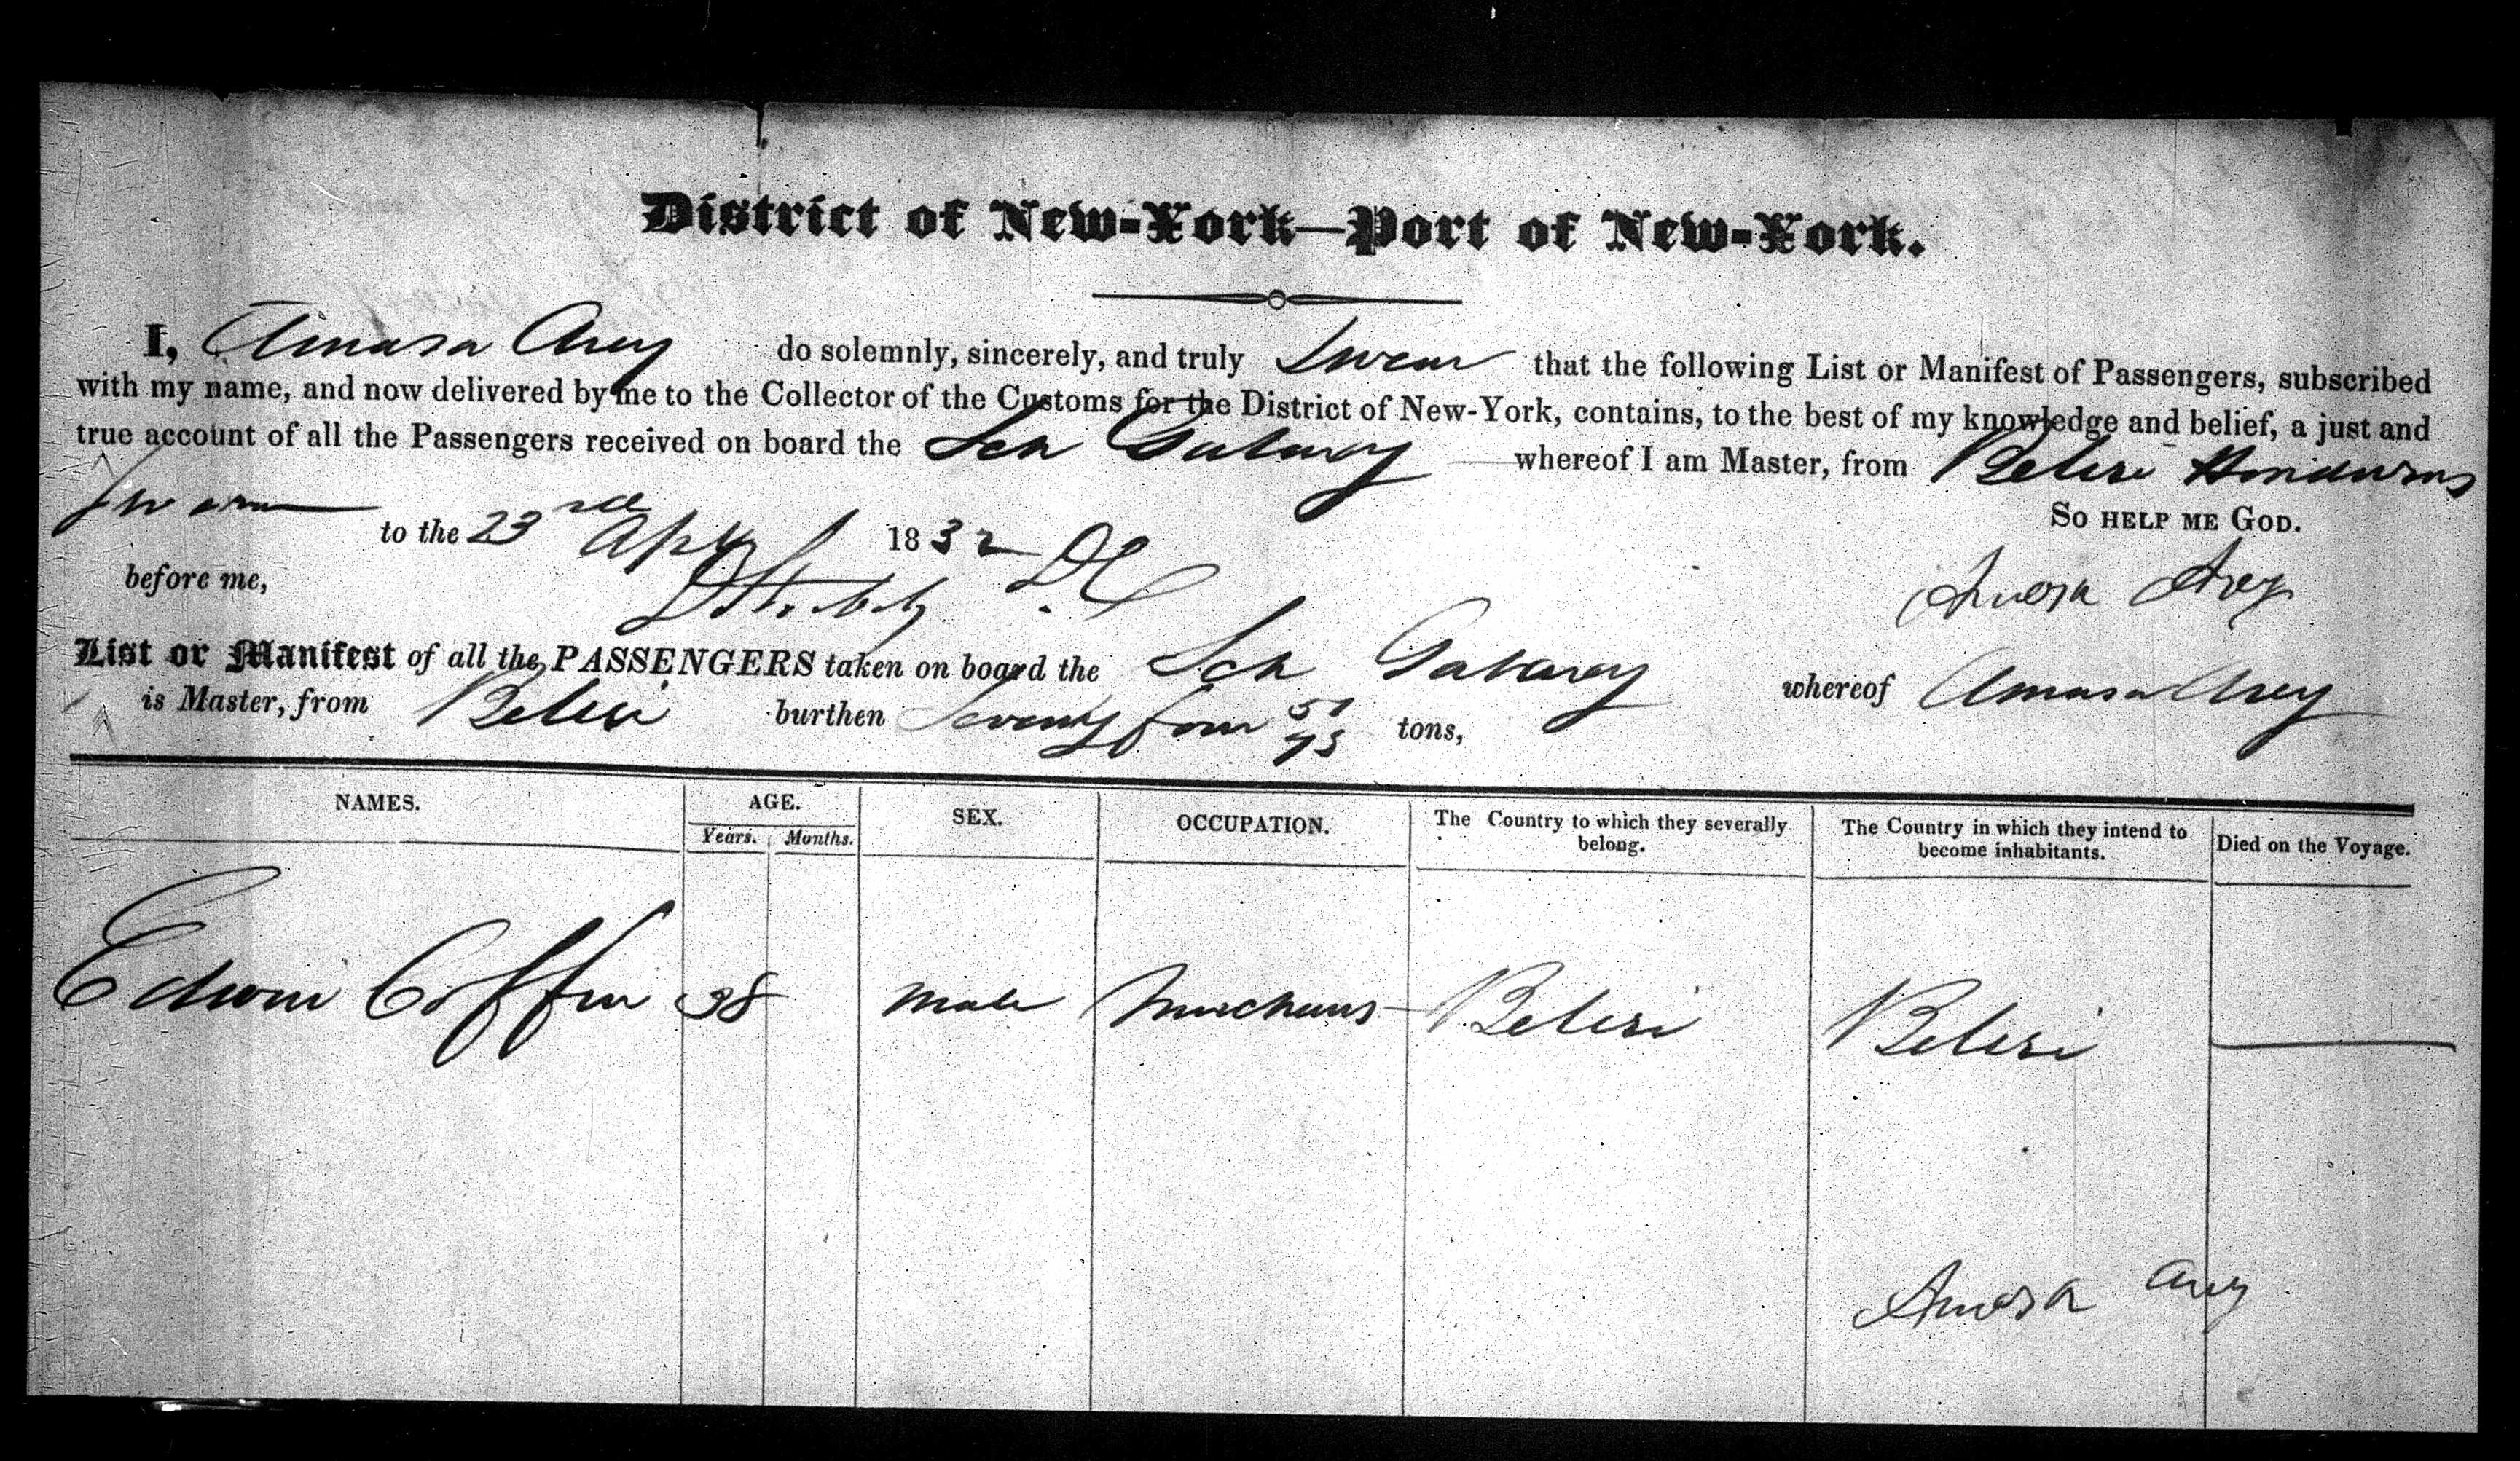 District of New-York—Port of New-York.
I, Amasa Arey do solemnly, sincerely, and truly Swear that the following List or Manifest of Passengers, subscribed
with my name, and now delivered by me to the Collector of the Customs for the District of New-York, contains, to the best of my knowledge and belief, a just and
true account of all the Passengers received on board the Sch whereof I am Master, from Belize Honduras
Sworn to the 23rd Apl 1832 DC So HELP ME GOD.
before me, Amasa Arey
List or Manifest of all the PASSENGERS taken on board the Sch whereof Amasa Arey
is Master, from Belize burthen Seventy four 51/95 tons,
NAMES. AGE. SEX. OCCUPATION. The Country to which they severally belong. The Country in which they intend to become inhabitants. Died on the Voyage.
Years. Months.
Edwin Coffin 38 Male Merchant Belize Belize
Amasa Arey